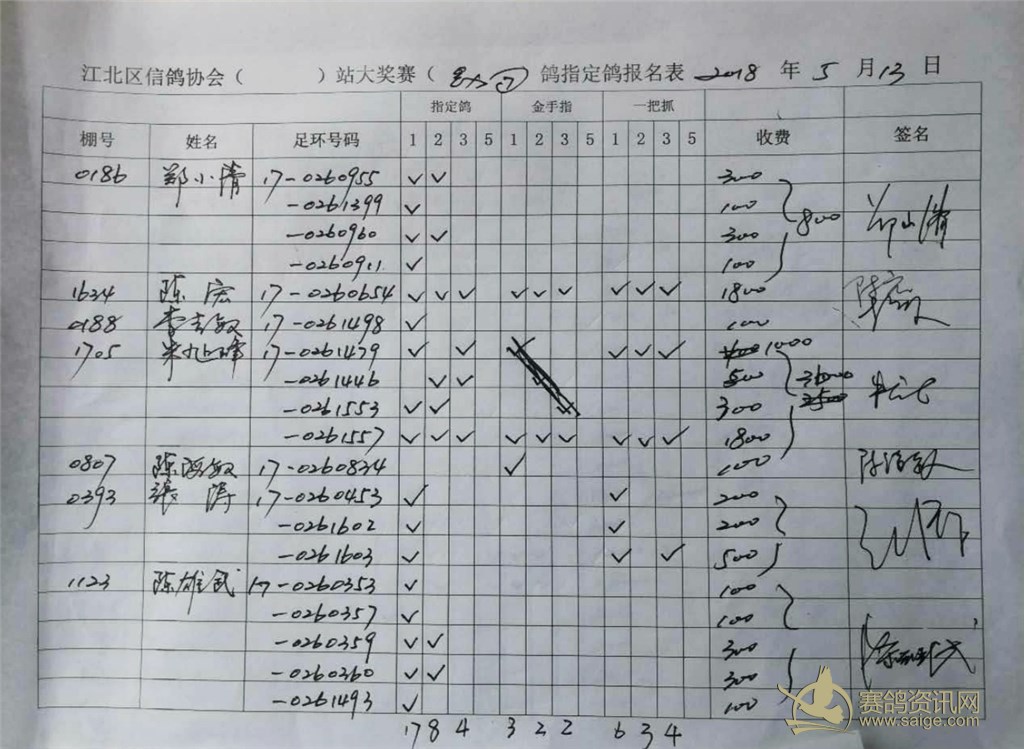 江北区信鸽协会（ ）站大奖赛（ ）鸽指定鸽报名表 2018 年 5 月 13 日
指定鸽 金手指 一把抓
棚号 姓名 足环号码 1 2 3 5 1 2 3 5 1 2 3 5 收费 签名
0186 郑小清 17-0260955 ✓ ✓ 300
-0261399 ✓ 100
-0260960 ✓ ✓ 300 800 郑小清
-0260911 ✓ 100
1634 陈宏 17-0260654 ✓ ✓ ✓ ✓ ✓ ✓ ✓ ✓ ✓ 1800
0188 李志敏 17-0261498 ✓ 100
1705 朱旭峰 17-0261479 ✓ ✓ ✓ ✓ ✓ 1000
-0261446 ✓ ✓ 500
-0261553 ✓ ✓ 300
-0261557 ✓ ✓ ✓ ✓ ✓ ✓ ✓ ✓ ✓ 1800
0807 陈海敏 17-0260834 ✓ 100 陈海敏
0393 张涛 17-0260453 ✓ ✓ 200
-0261602 ✓ ✓ 200
-0261603 ✓ ✓ ✓ 500
1123 陈雄武 17-0260353 ✓ 100
-0260357 ✓ 100
-0260359 ✓ ✓ 300
-0260360 ✓ ✓ 300
-0261493 ✓ 100
17 8 4 3 2 2 6 3 4
赛鸽资讯网
www.saige.com